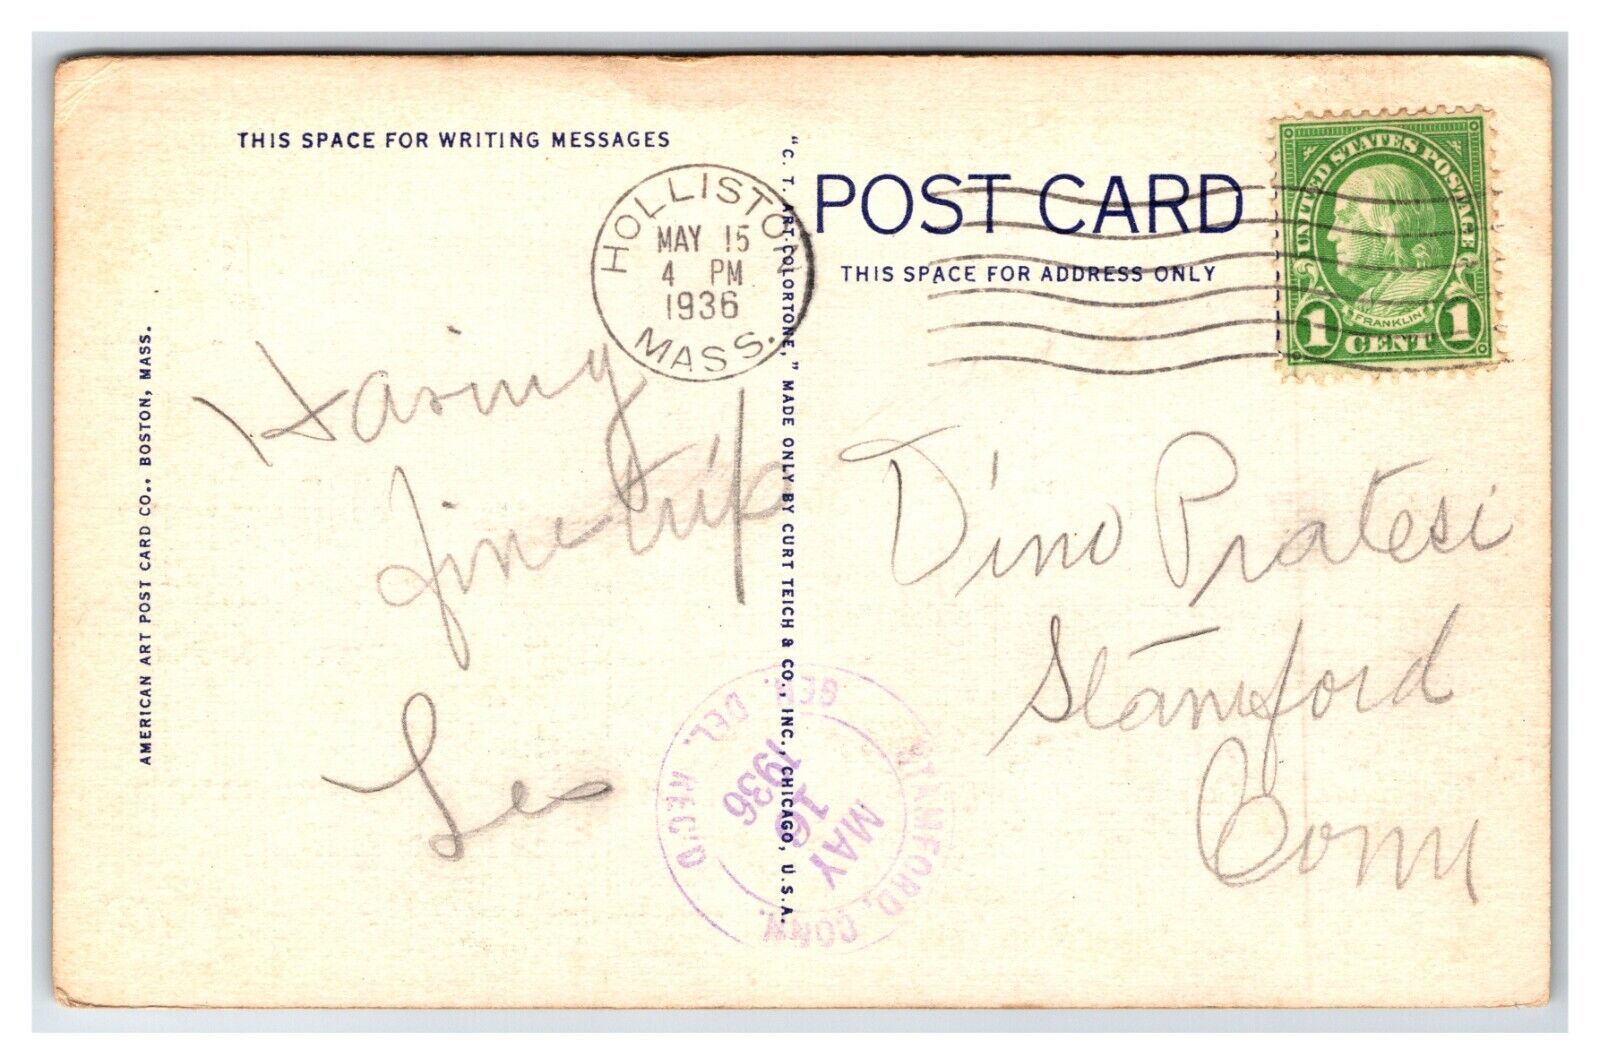 THIS SPACE FOR WRITING MESSAGES
HOLLISTON
MAY 15
4 PM
1936
MASS.
Having
fine trip
Leo
AMERICAN ART POST CARD CO., BOSTON, MASS.
"C. T. ART-COLORTONE," MADE ONLY BY CURT TEICH & CO., INC., CHICAGO, U.S.A.
POST CARD
THIS SPACE FOR ADDRESS ONLY
UNITED STATES POSTAGE
FRANKLIN
1 CENT 1
Dino Pratesi
Stamford
Conn
STAMFORD, CONN.
MAY
16
1936
GEN. DEL. REC'D